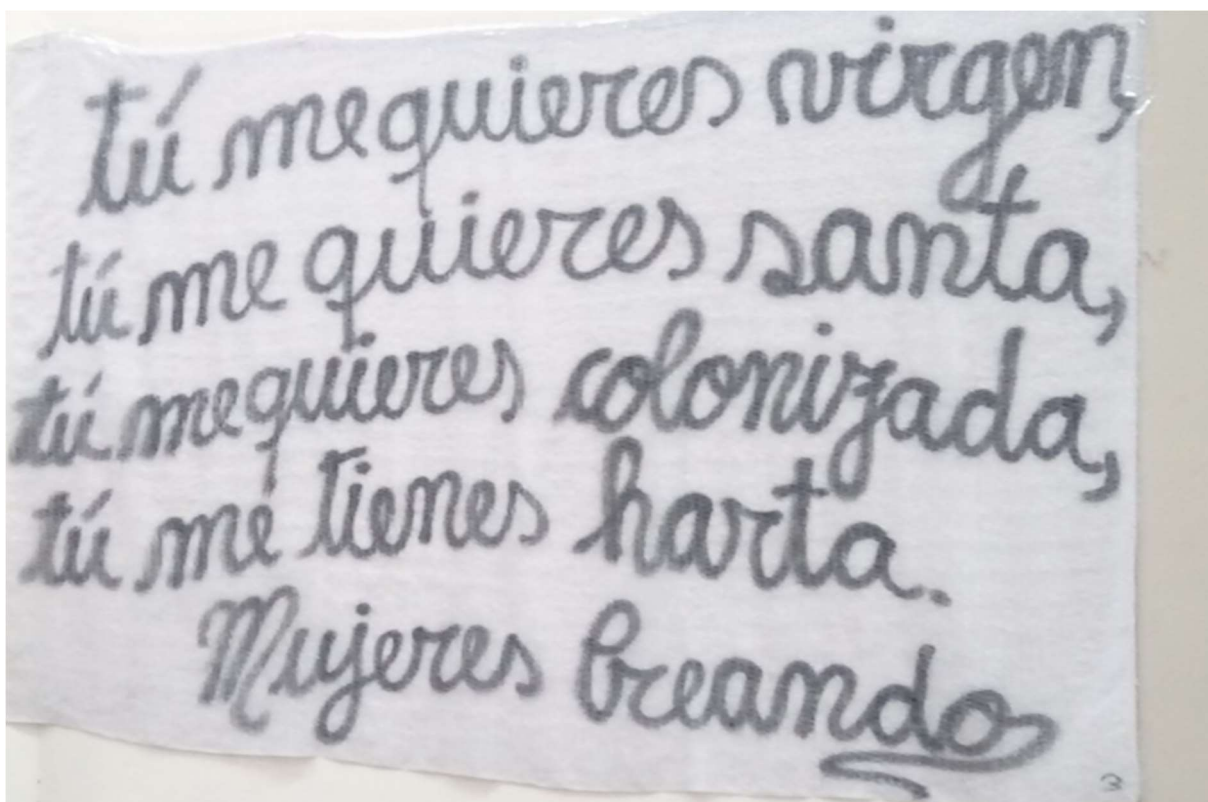 tú me quieres virgen,
tú me quieres santa,
tú me quieres colonizada,
tú me tienes harta.
Mujeres Creando
3